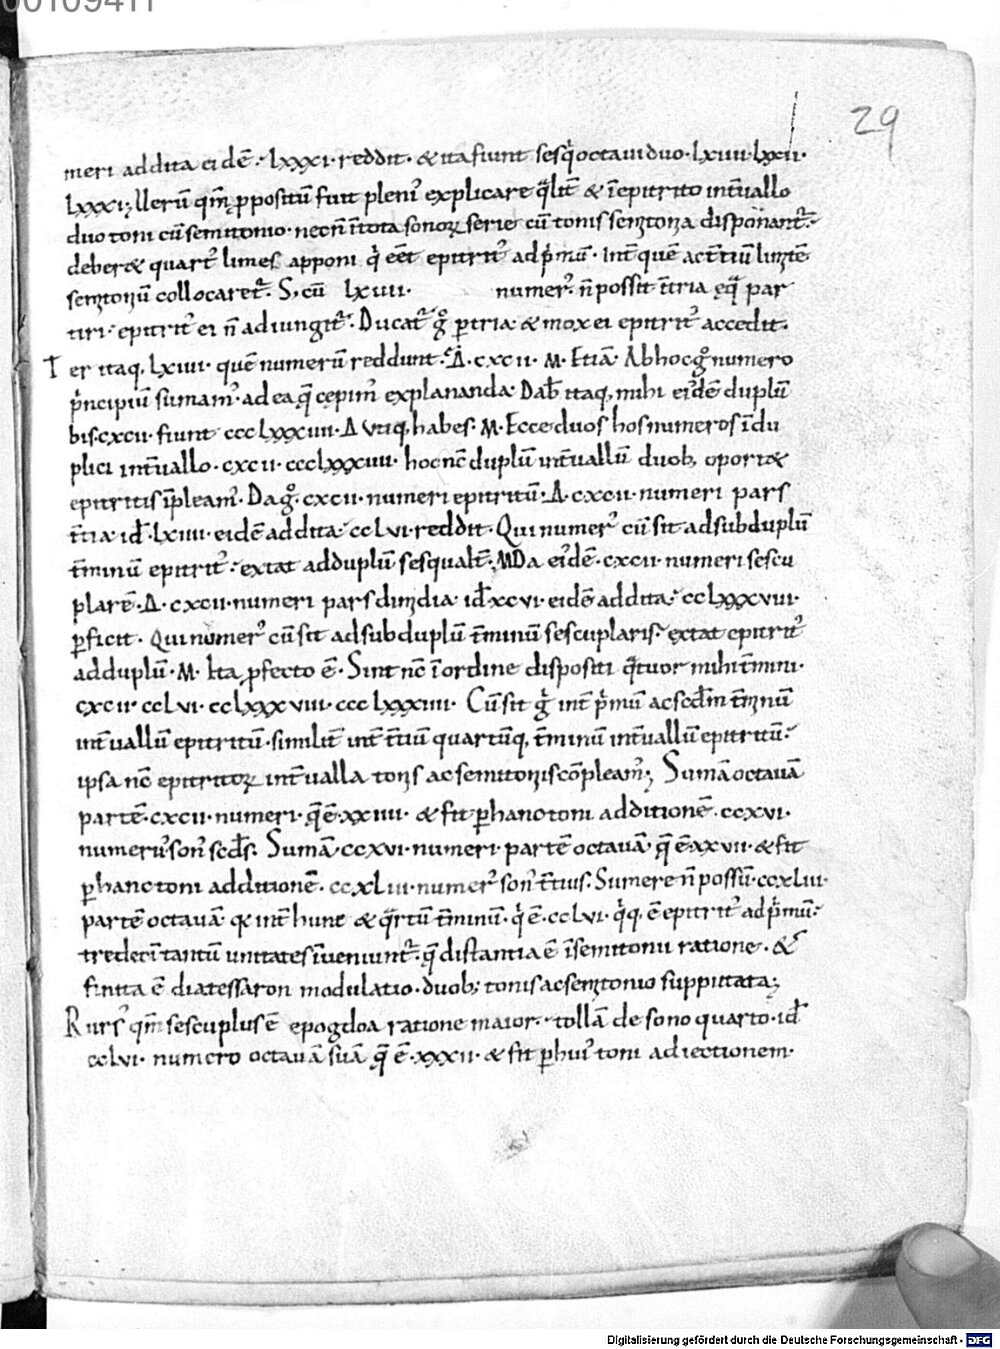 00109411
29
meri addita eidē· lxxxi· reddit· & ita fiunt sesq̇octaui duo· lxiiii· lxxii·
lxxxi; Uerū qm̄ ꝓpositū fuit pleniꝰ explicare q̄lit̄ & ī epitrito int̄uallo
duo toni cū semitonio· necn̄ ī tota sonoꝝ serie cū tonis semitonia disponant̄·
deber& quartꝰ limes apponi q̇ eēt epitritꝰ ad p̄mū· Int̄ quē ac t̄tiū limitē
semitoniū collocaret̄· S; cū lxiiii· numerꝰ n̄ possit t̄tria ęq̄ par
tiri· epitritꝰ ei n̄ adiungit̄· Ducat̄ gͦ ꝑ tria· & mox ei epitritꝰ accedit·
Ter itaq; lxiiii· quē numerū reddunt· Δ· cxcii· M· Etiā Ab hoc gͦ numero
p̄ncipiū sumamꝰ· ad ea q̄ cępimꝰ explananda· Dab̄ itaq; mihi eiꝰdē duplū
bis· cxcii· fiunt ccclxxxiiii· Δ Utiq; habes· M· Ecce duos hos numeros ī du
plici int̄uallo· cxcii· ccclxxxiiii· hoc nc̄ duplū int̄uallū duob; oport&
epitritis īpleamꝰ· Da gͦ· cxcii· numeri epitritū· Δ· cxcii· numeri pars
t̄tia· id̄· lxiiii· eidē addita· cclvi· reddit· Qui numerꝰ cū sit ad subduplū
t̄minū epitritꝰ· extat ad duplū sesqualt̄· M Da eiꝰdē· cxcii· numeri sescu
plarē· Δ· cxcii· numeri pars dimidia· id̄ xcvi· eidē addita· cclxxxviii·
ꝑficit· Qui numerꝰ cū sit ad subduplū t̄minū sescuplaris· extat epitritꝰ
ad duplū· M· Ita ꝓfecto ē· Sint nc̄ ī ordine dispositi q̄tuor mihi t̄mini·
cxcii· cclvi· cclxxxviii· ccclxxxiiii· Cū sit gͥ int̄ p̄mū ac scd̄m t̄minū
int̄uallū epitritū· similit̄ int̄ t̄tiū quartūq; t̄minū int̄uallū epitritū·
ipsa nc̄ epitritoꝝ int̄ualla tonis ac semitoniis cōpleamꝰ; Sumā octauā
partē· cxcii· numeri· q̄ ē· xxiiii· & fit ꝑ hanc toni additionē· ccxvi·
numerꝰ sonꝰ scd̄s· Sumā· ccxvi· numeri· partē octauā q̄ ē· xxvii· & fit
ꝑ hanc toni additionē· ccxliii· numerꝰ sonꝰ t̄tius· Sumere n̄ possū· ccxliii·
partē octauā· q̇ int̄ hunc & q̄rtū t̄minū· q̇ ē· cclvi· q̇q; ē epitritꝰ ad p̄mū·
tredecī tantū unitates īueniunt̄· q̄ distantia ē ī semitonii ratione· &
finita ē diatessaron modulatio· duob; tonis ac semitonio supputata;
Rursꝰ qm̄ sescuplus ē epogdoa ratione maior· tollā de sono quarto· id̄
cclvi· numero octauā suā q̄ ē· xxxii· & fit ꝑ huiꝰ toni adiectionem·
Digitalisierung gefördert durch die Deutsche Forschungsgemeinschaft - DFG